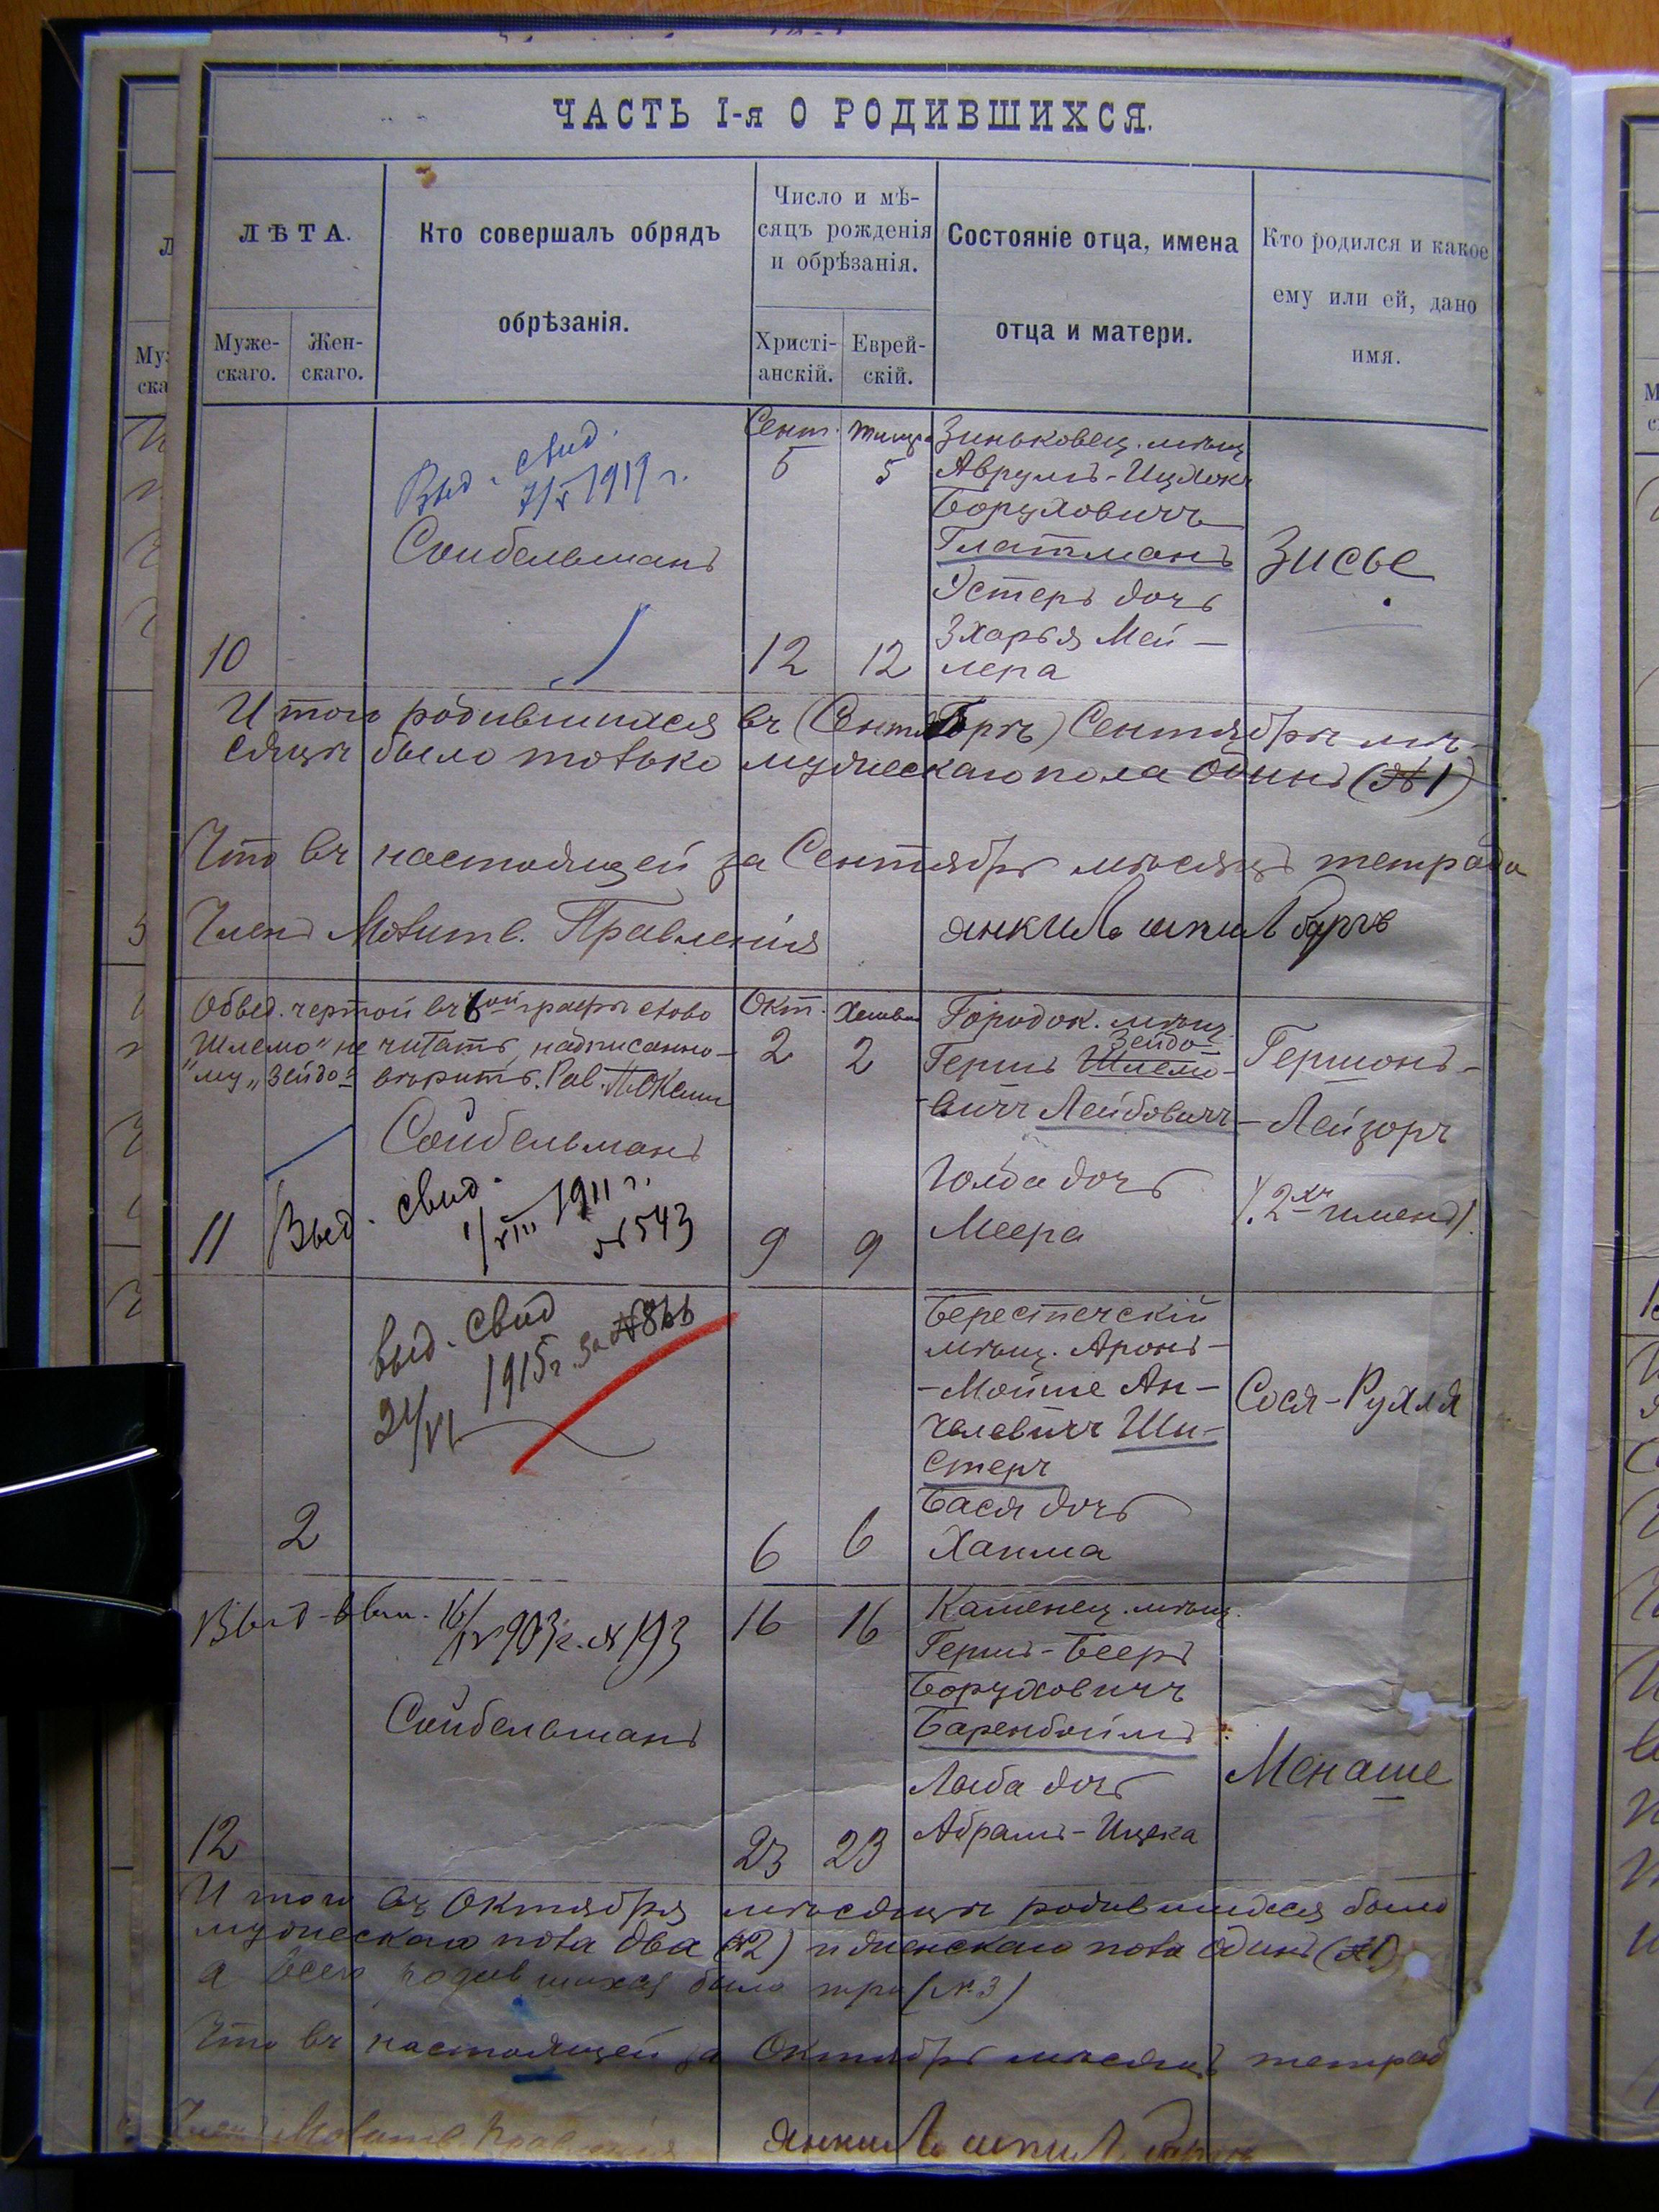 ЧАСТЬ I-я О РОДИВШИХСЯ.
ЛѢТА.
Муже-
скаго.
Жен-
скаго.
Кто совершалъ обрядъ
обрѣзанія.
Число и мѣ-
сяцъ рожденія
и обрѣзанія.
Христі-
анскій.
Еврей-
скій.
Состояніе отца, имена
отца и матери.
Кто родился и какое
ему или ей, дано
имя.
Выд. свид.
1919 г.
Сойбельманъ
10
Сент.
5
12
5
12
Зиньковец. мѣщ
Аврумъ-Ицхокъ
Боруховичъ
Глатманъ
Эстеръ дочь
Зхарья Мей-
лера
Зисье
Итого родившихся въ (Сентябрѣ) Сентябрѣ мѣ-
сяцѣ было только мужескаго пола одинъ (№1)
Что въ настоящей за Сентябрь мѣсяцъ тетради
Членъ Молитв. Правленія
янкиль шпилбергъ
Обвед. чертой въ 6ой графѣ слово
"Шлемо" не читать, надписанно-
му "Зейдо" вѣрить. Рав.
Сойбельманъ
Выд. свид.
1/VIII 1911 г.
№543
11
Окт.
2
9
Хешван
2
9
Городок. мѣщ.
Зейдо
Гершъ Шлемо-
вичъ Лейбовичъ
Голда дочь
Меера
Гершонъ-
-Лейзоръ
(2хъ именъ).
выд. свид
24/VI 1915 г. за №866
2
6
6
Берестечскій
мѣщ. Аронъ-
-Мойше Ан-
челевичъ Ши-
стеръ
Бася дочь
Хаима
Сося-Рухля
16/IV 903 г. №193
Сойбельманъ
12
16
23
16
23
Каменец. мѣщ.
Гершъ-Бееръ
Боруховичъ
Баренбоймъ
Лыба дочь
Абрамъ-Ицека
Менаше
Итого въ Октябрѣ мѣсяцѣ родившихся было
мужескаго пола два (№2) и женскаго пола одинъ (№1)
а всего родившихся было три (№3)
Что въ настоящей за Октябрь мѣсяцъ тетрад
Членъ Молитв. Правленія
янкиль шпилбергъ